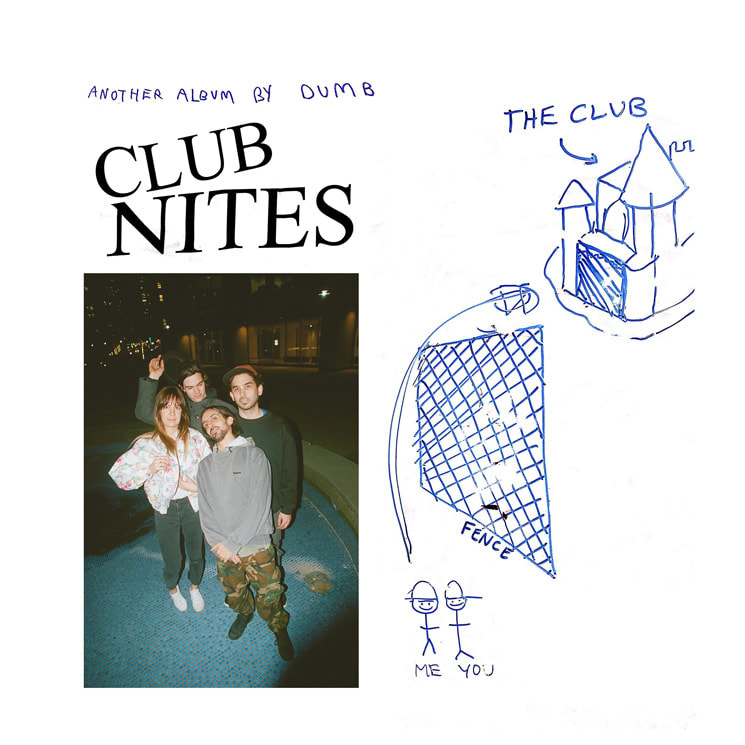 ANOTHER ALBUM BY DUMB
CLUB
NITES
THE CLUB
FENCE
ME YOU